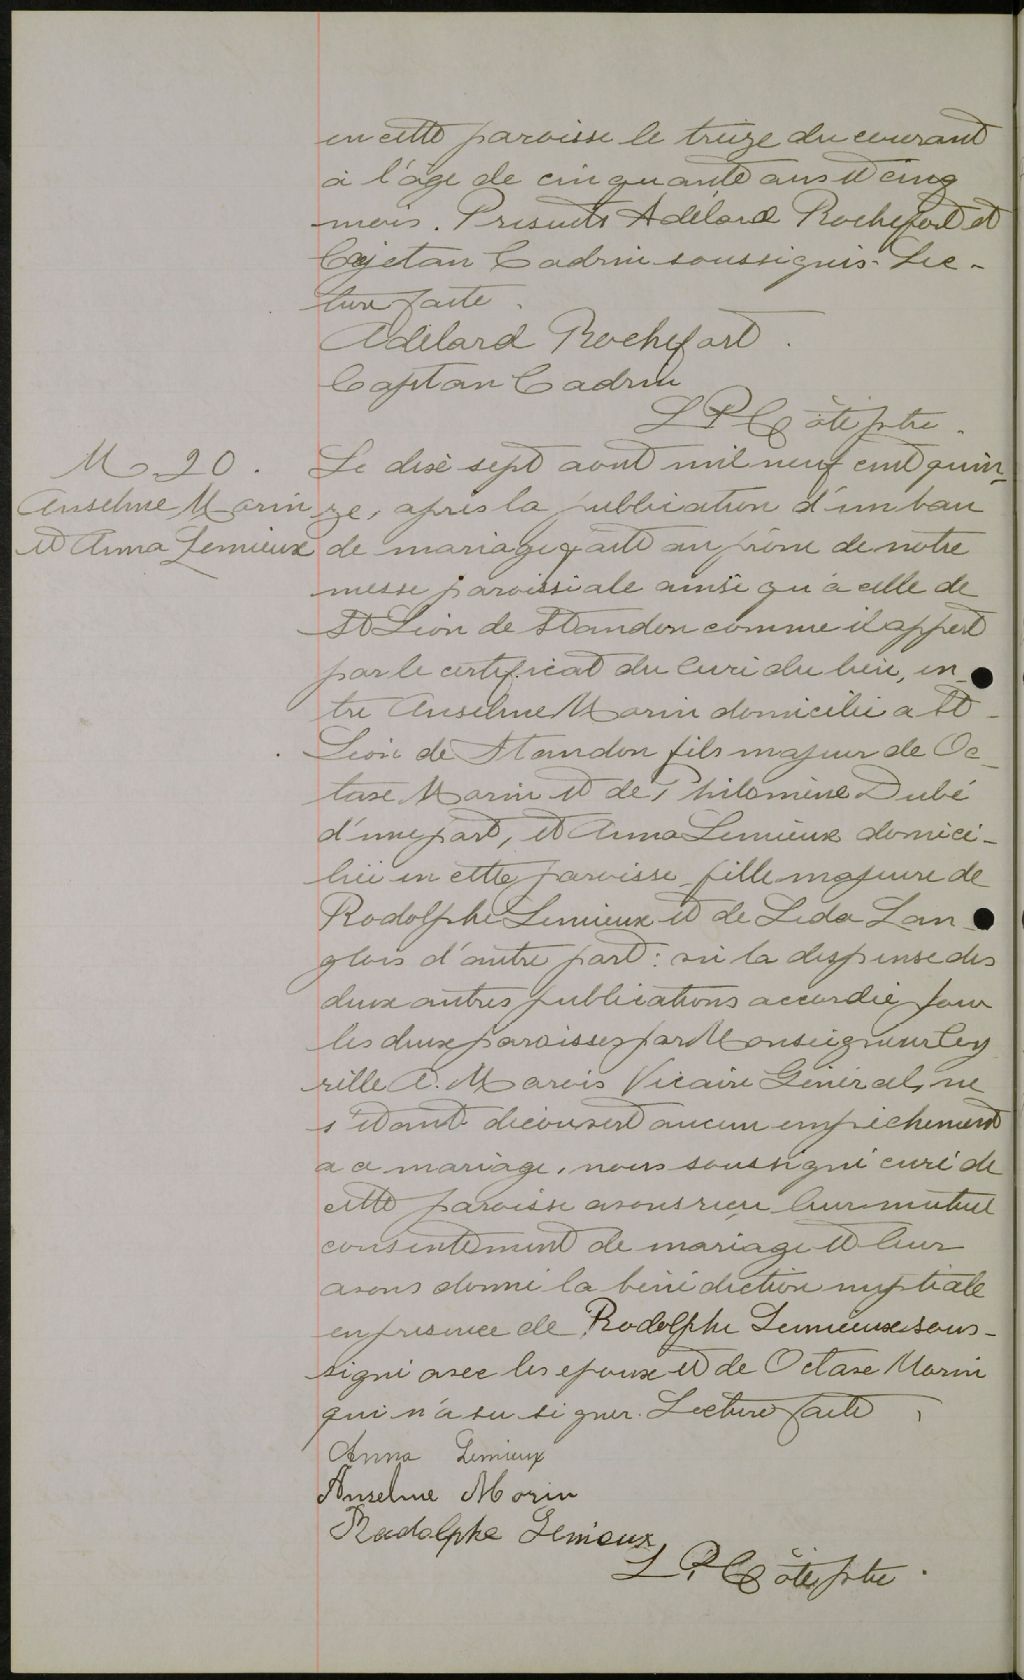 en cette paroisse le treize du courant
à l'âge de cinquante ans et cinq
mois. Présents Adélard Rochefort et
Cajetan Cadrin soussignés. Lec-
ture faite.
Adélard Rochefort.
Cajetan Cadrin
L P Côté ptre.
M 20.
Anselme Morin
et Anna Lemieux
Le dix sept aout mil neuf cent quin-
ze, après la publication d'un ban
de mariage faite au prône de notre
messe paroissiale ainsi qu'à celle de
St Léon de Standon comme il appert
par le certificat du Curé du lieu, en-
tre Anselme Morin domicilié a St-
Léon de Standon fils majeur de Oc-
tave Morin et de Philomène Dubé
d'une part, et Anna Lemieux domici-
liée en cette paroisse fille majeure de
Rodolphe Lemieux et de Léda Lan-
glois d'autre part: vu la dispense des
deux autres publications accordée pour
les deux paroisses par Monseigneur Cy
rille A. Marois Vicaire Général, ne
s'étant découvert aucun empêchement
a ce mariage, nous soussigné curé de
cette paroisse avons reçu leur mutuel
consentement de mariage et leur
avons donné la bénédiction nuptiale
en présence de Rodolphe Lemieux sous-
signé avec les epoux et de Octave Morin
qui n'a su signer. Lecture faite,
Anna Lemieux
Anselme Morin
Rodolphe Lemieux
L. P. Côté ptre.